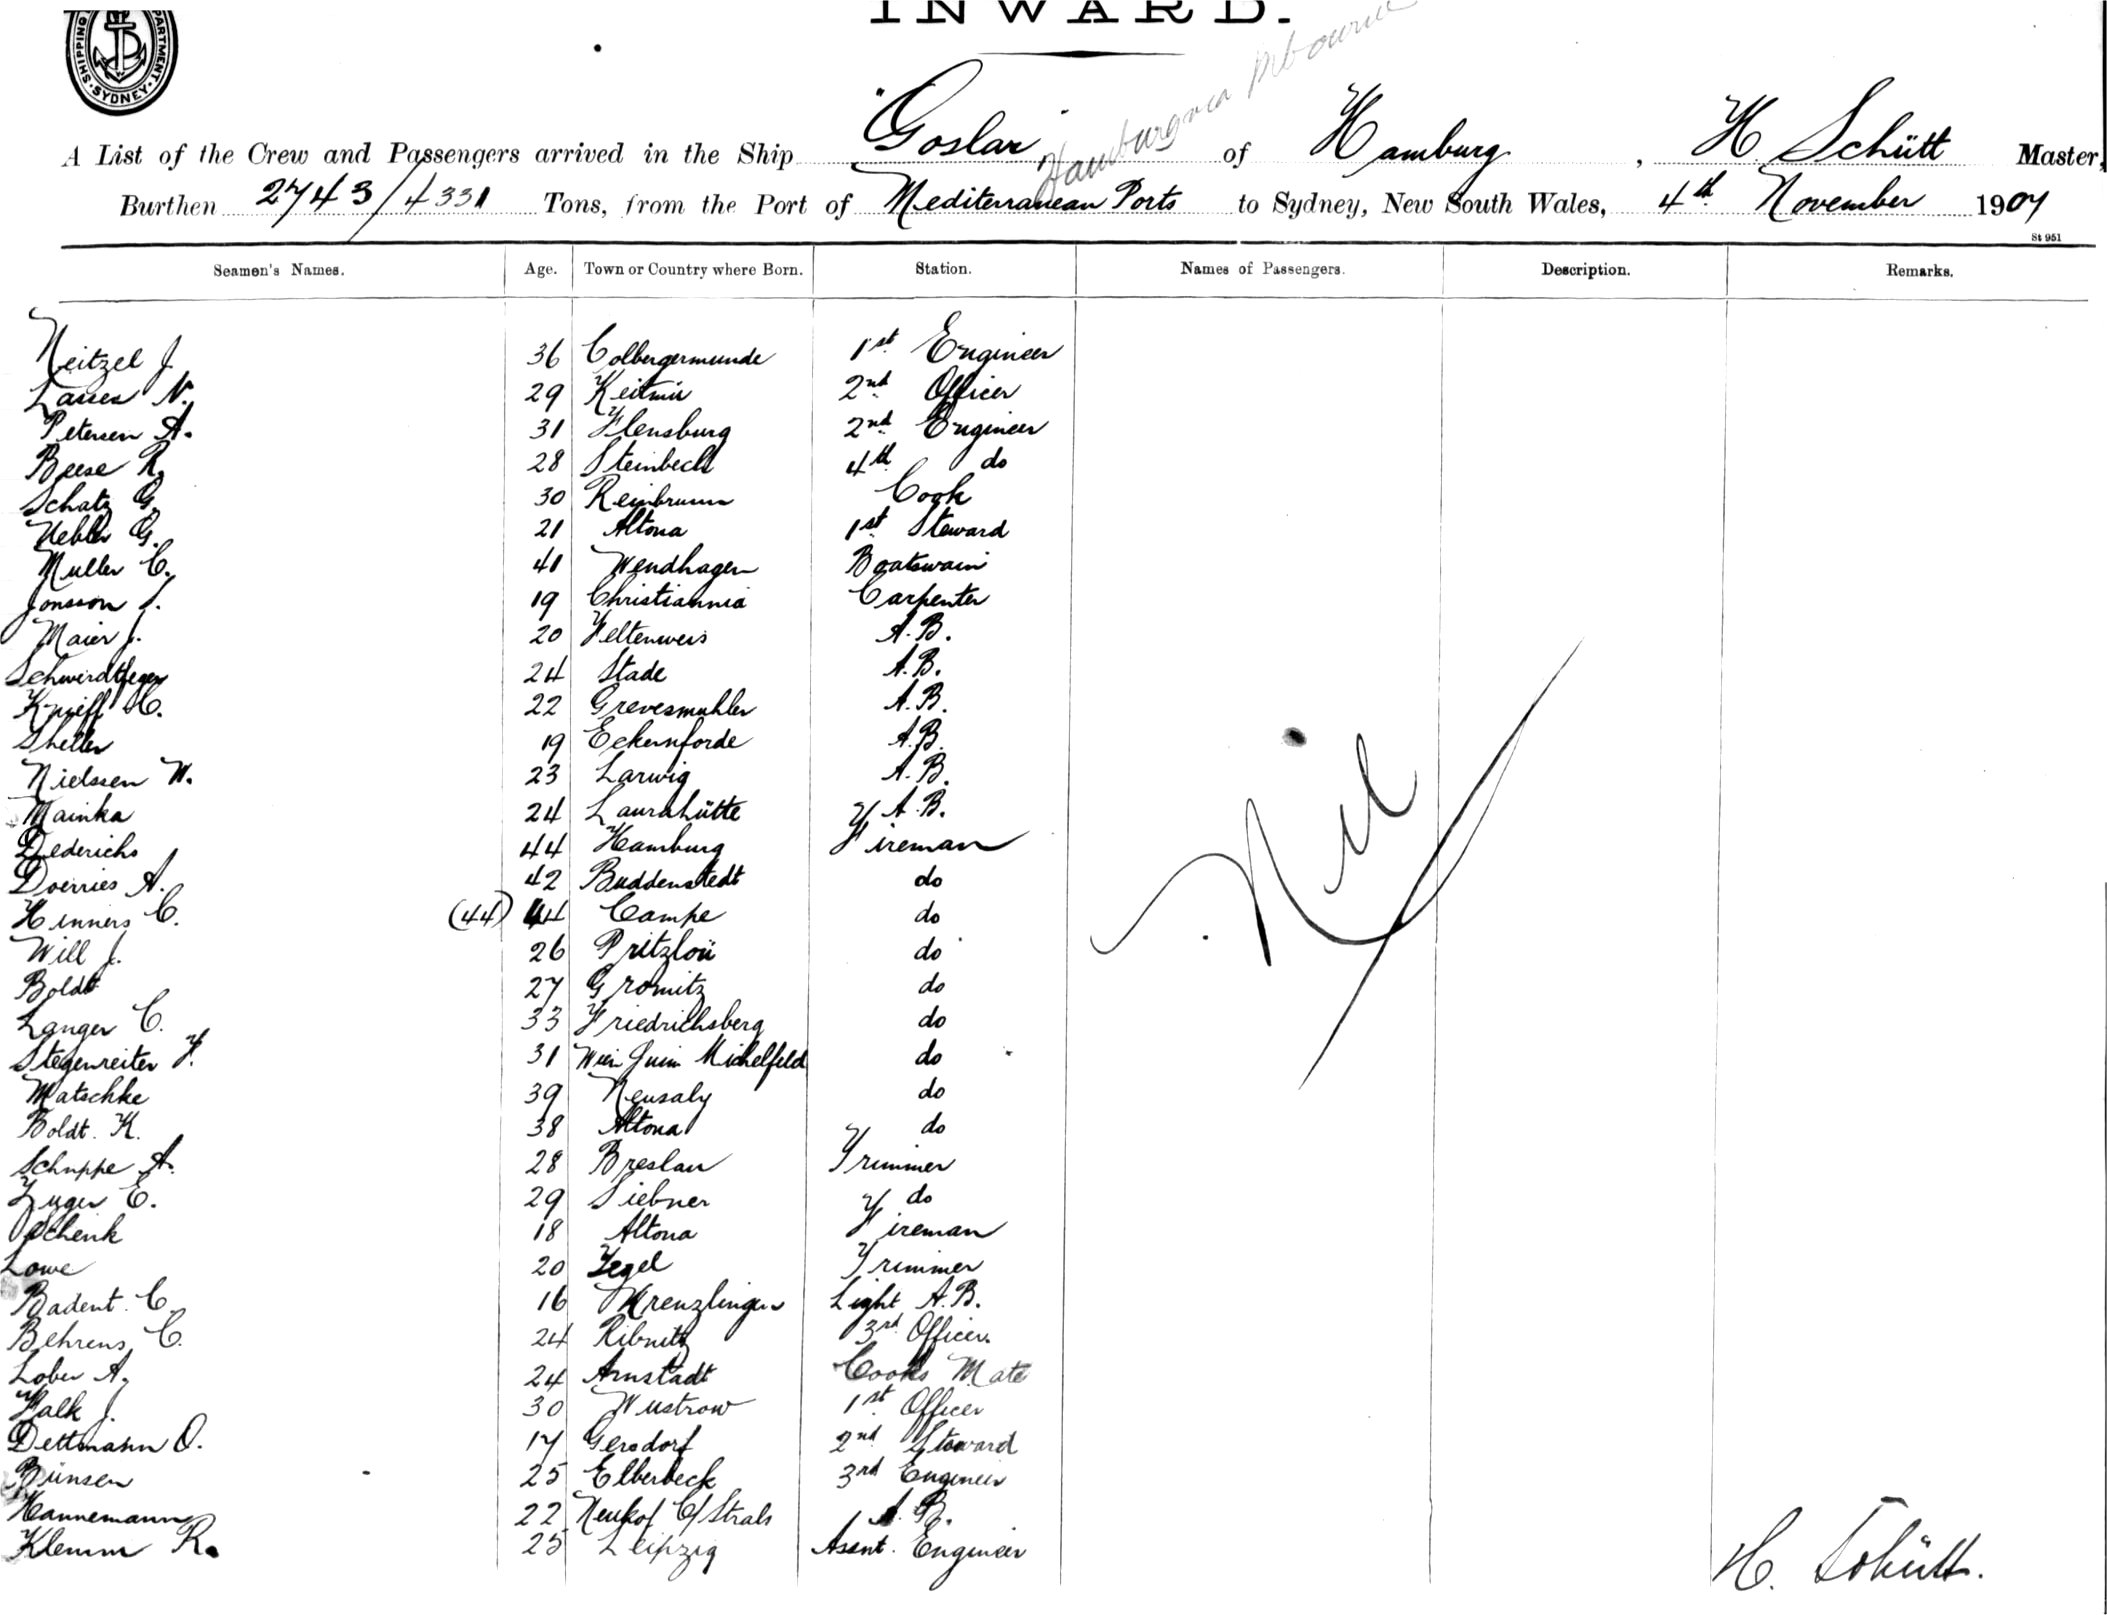 INWARD.
SHIPPING DEPARTMENT SYDNEY
Hamburg via Mbourne
A List of the Crew and Passengers arrived in the Ship "Goslar" of Hamburg, H Schütt Master,
Burthen 2743/4331 Tons, from the Port of Mediterranean Ports to Sydney, New South Wales, 4th November 1907
St 951
Seamen's Names. Age. Town or Country where Born. Station. Names of Passengers. Description. Remarks.
Neitzel J. 36 Colbergermunde 1st Engineer
N. 29 2nd Officer
Petersen A. 31 Flensburg 2nd Engineer
Beese R. 28 Steinbeck 4th do
Schatz G. 30 Reinbrunn Cook
G. 21 Altona 1st Steward
Muller C. 41 Wendhagen Boatswain
Jonsson 19 Christiannia Carpenter
Maier J. 20 A.B.
Schwerdtfeger 24 Stade A.B.
Knieff H. 22 Grevesmuhler A.B.
Sheller 19 Eckernforde A.B.
Nielssen W. 23 Larwig A.B.
Mainka 24 Laurahütte A.B.
Dederichs 44 Hamburg Fireman
Doerries A. 42 Buddenstedt do
Hinners C. (44) 44 Campe do
Will J. 26 Pritzlow do
Boldt 27 Gromitz do
Langer C. 33 Friedrichsberg do
Stegenreiter F. 31 Michelfeld do
Matschke 39 Neusalz do
Boldt. K. 38 Altona do
Schuppe A. 28 Breslau Trimmer
Zuger E. 29 Siebner do
Schenk 18 Altona Fireman
Lowe 20 Tegel Trimmer
Badent. C. 16 Krenzlingen Light A.B.
Behrens C. 24 Ribnitz 3rd Officer.
Lober A. 24 Arnstadt Cooks Mate
Falk J. 30 Wustrow 1st Officer
Dettmann O. 17 Gersdorf 2nd Steward
Bünsen 25 Elberbeck 3rd Engineer
Hannemann 22 Neuhof C/Strals A.B.
Klemm R. 25 Leipzig Assnt. Engineer
Nil
H. Schütt.